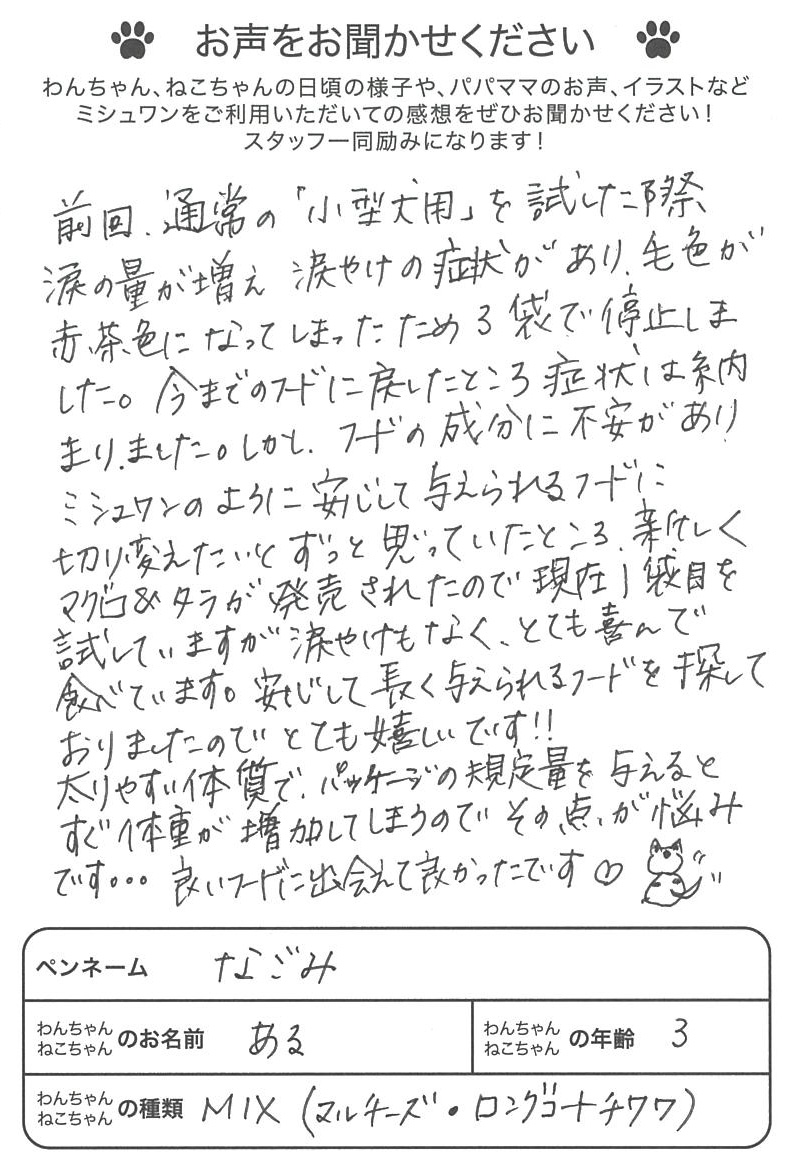 お声をお聞かせください
わんちゃん、ねこちゃんの日頃の様子や、パパママのお声、イラストなど
ミシュワンをご利用いただいての感想をぜひお聞かせください！
スタッフ一同励みになります！
前回、通常の「小型犬用」を試した際、
涙の量が増え 涙やけの症状があり、毛色が
赤茶色になってしまったため3袋で停止しま
した。今までのフードに戻したところ症状は納
まりました。しかし、フードの成分に不安があり
ミシュワンのように安心して与えられるフードに
切り変えたいとずっと思っていたところ、新しく
マグロ&タラが発売されたので現在1袋目を
試していますが涙やけもなく、とても喜んで
食べています。安心して長く与えられるフードを探して
おりましたのでとても嬉しいです!!
太りやすい体質で、パッケージの規定量を与えると
すぐ体重が増加してしまうのでその点が悩み
です... 良いフードに出会えて良かったです♡
ペンネーム なごみ
わんちゃん ねこちゃん のお名前 ある わんちゃん ねこちゃん の年齢 3
わんちゃん ねこちゃん の種類 MIX (マルチーズ・ロングコートチワワ)